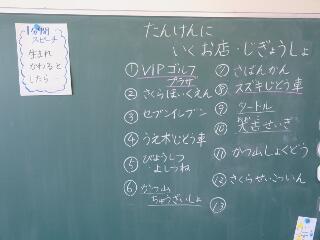 1分間
スピーチ
生まれ
かわると
したら…
たんけんに
いくお店・じぎょうしょ
① VIPゴルフ
プラザ
② さくらほいくえん
③ セブンイレブン
④ うえ木じどう車
⑤ びようしつ
よしつね
⑥ かつ山
ちゅうざいしょ
⑦ さばんかん
⑧ スズキじどう車
⑨ タートル
⑪ かつ山しょくどう
⑫ さくらせいこついん
⑬